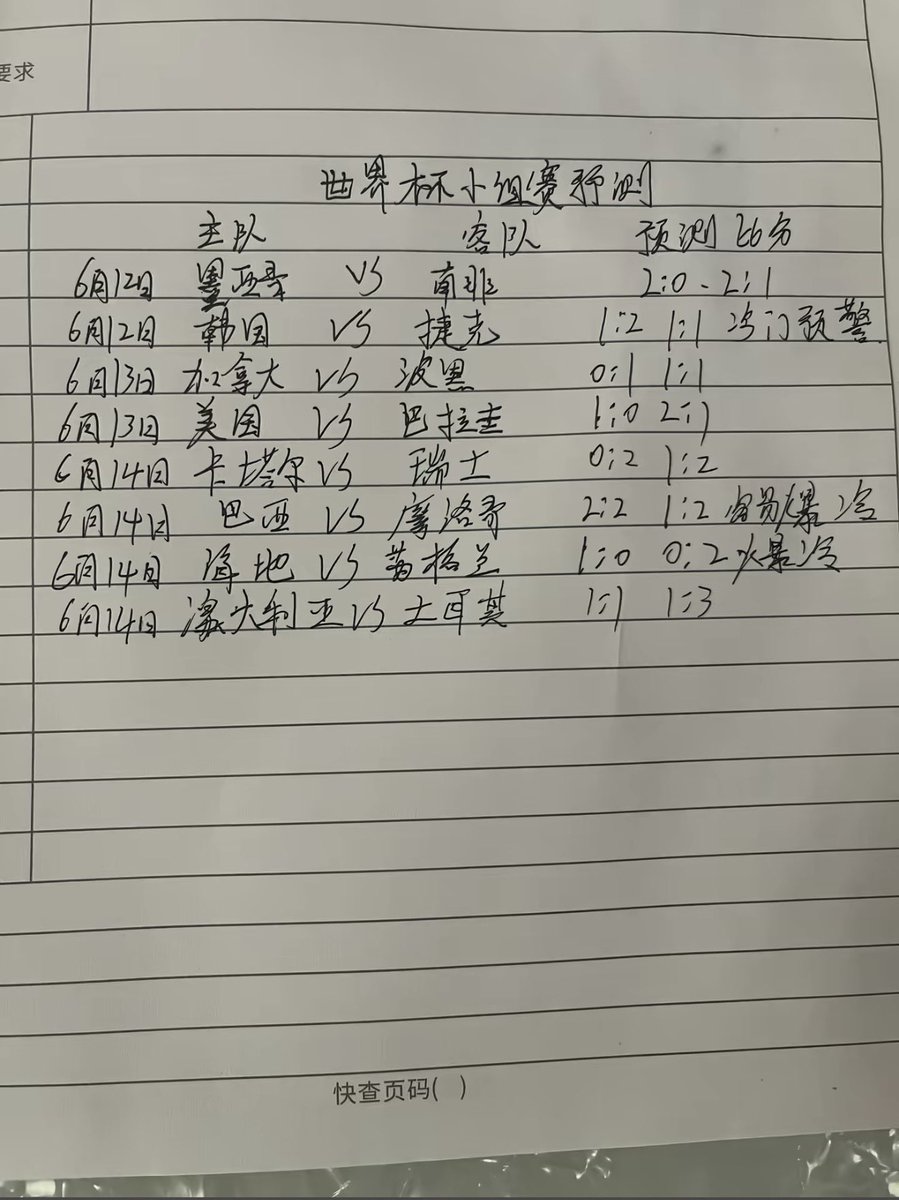 要求
世界杯小组赛预测
主队 客队 预测比分
6月12日 墨西哥 VS 南非 2:0、2:1
6月12日 韩国 VS 捷克 1:2 1:1 冷门预警
6月13日 加拿大 VS 波黑 0:1 1:1
6月13日 美国 VS 巴拉圭 1:0 2:1
6月14日 卡塔尔 VS 瑞士 0:2 1:2
6月14日 巴西 VS 摩洛哥 2:2 1:2 容易爆冷
6月14日 海地 VS 苏格兰 1:0 0:2 火暴冷
6月14日 澳大利亚 VS 土耳其 1:1 1:3
快查页码( )